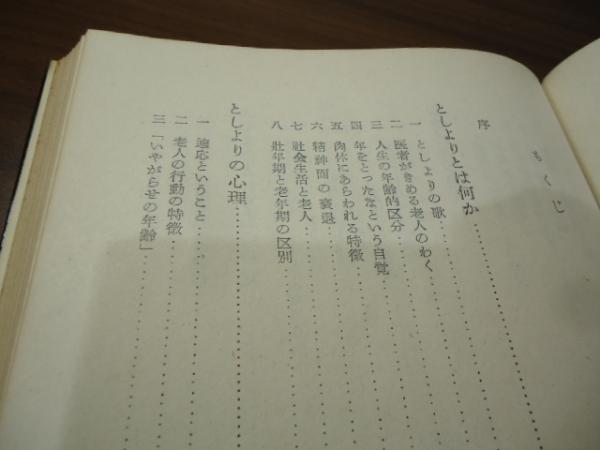 もくじ
序
としよりとは何か
一 としよりの歌
二 医者がきめる老人のわく
三 人生の年齢的区分
四 年をとったなという自覚
五 肉体にあらわれる特徴
六 精神面の衰退
七 社会生活と老人
八 壯年期と老年期の区別
としよりの心理
一 適応ということ
二 老人の行動の特徴
三 「いやがらせの年齢」